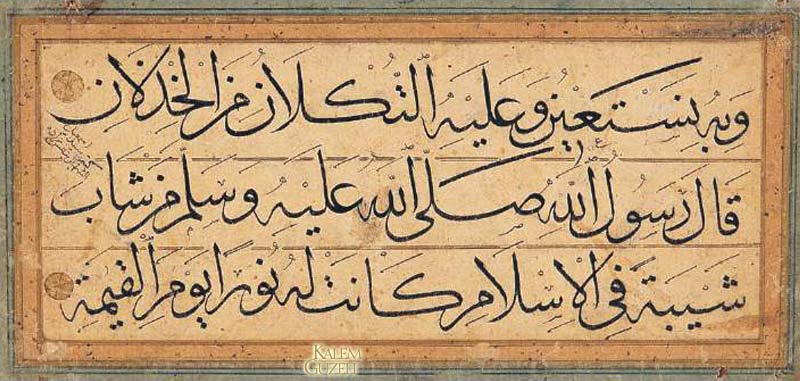 وَبِهِ نَسْتَعِينُ وَعَلَيْهِ التُّكْلَانُ مِنَ الْخِذْلَانِ
قَالَ رَسُولُ اللّٰهِ صَلَّى اللّٰهُ عَلَيْهِ وَسَلَّمَ مَنْ شَابَ
شَيْبَةً فِي الْاِسْلَامِ كَانَتْ لَهُ نُورًا يَوْمَ الْقِيٰمَةِ
KALEM
GUZELI